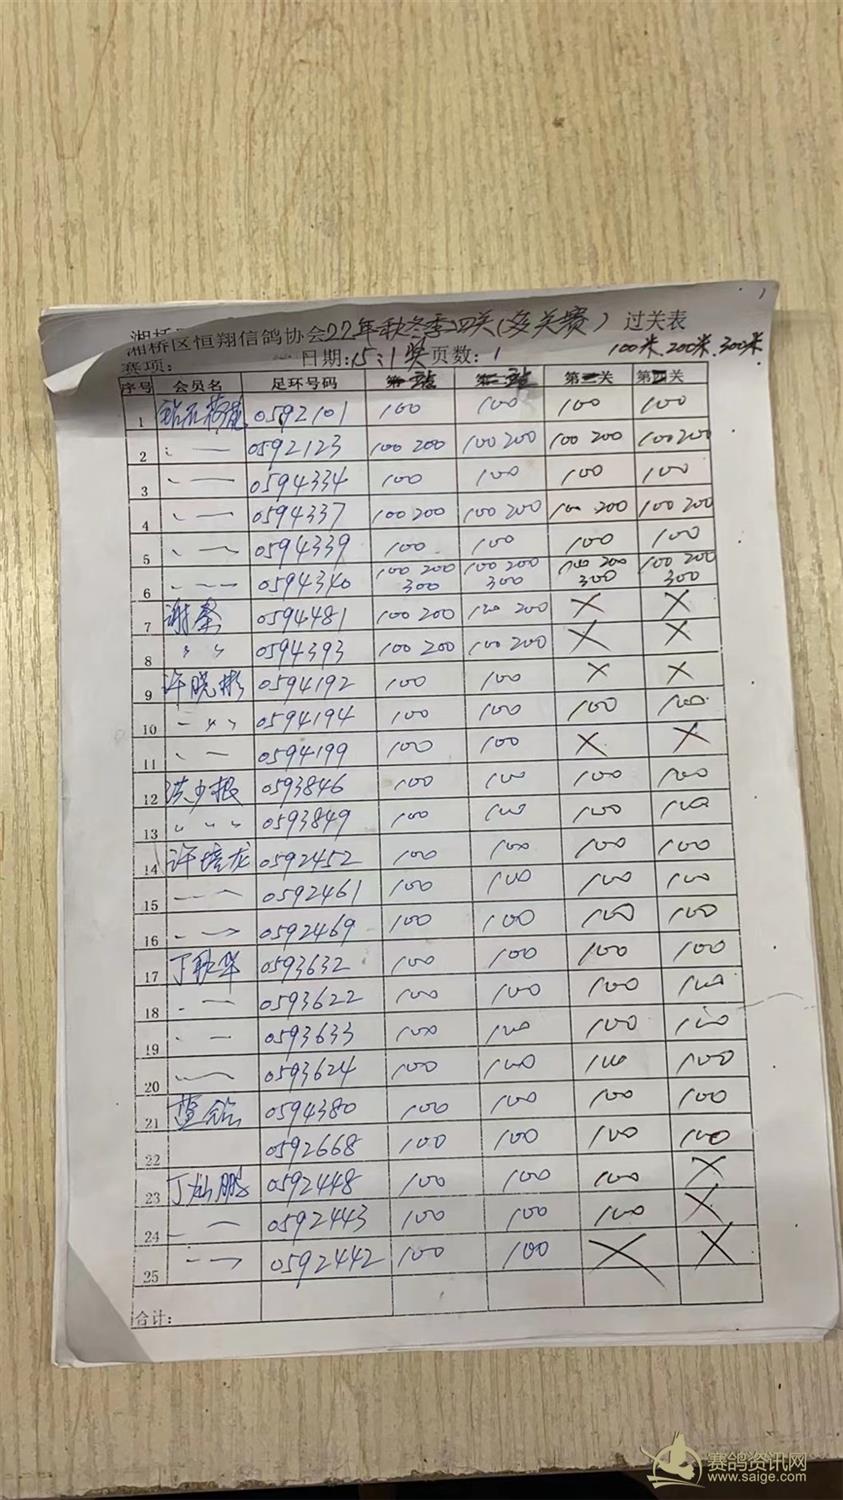 湘桥区恒翔信鸽协会22年秋冬季四关(多关赛) 过关表
赛项: 日期:15:1奖页数:1 100米.200米.300米
序号 会员名 足环号码 第一站 第二站 第三关 第四关
1 0592101 100 100 100 100
2 〃 — 0592123 100 200 100 200 100 200 100 200
3 〃 — 0594334 100 100 100 100
4 〃 — 0594337 100 200 100 200 100 200 100 200
5 〃 — 0594339 100 100 100 100
6 〃 — 0594340 100 200 300 100 200 300 100 200 300 100 200 300
7 谢 0594481 100 200 100 200 × ×
8 〃 〃 0594393 100 200 100 200 × ×
9 许晓彬 0594192 100 100 × ×
10 〃 〃 0594194 100 100 100 100
11 〃 — 0594199 100 100 × ×
12 洪少根 0593846 100 100 100 100
13 〃 〃 〃 0593849 100 100 100 100
14 许培龙 0592452 100 100 100 100
15 — 0592461 100 100 100 100
16 〃 — 0592469 100 100 100 100
17 丁耿华 0593632 100 100 100 100
18 〃 — 0593622 100 100 100 100
19 〃 — 0593633 100 100 100 100
20 〃 — 0593624 100 100 100 100
21 0594380 100 100 100 100
22 0592668 100 100 100 100
23 丁灿鹏 0592448 100 100 100 ×
24 — 0592443 100 100 100 ×
25 — 0592442 100 100 × ×
合计:
赛鸽资讯网
www.saige.com